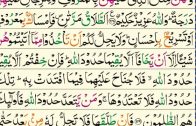 وَاللَّهُ عَزِيزٌ حَكِيمٌ الطَّلَاقُ مَرَّتَانِ فَإِمْسَاكٌ
تَسْرِيحٌ بِإِحْسَانٍ وَلَا يَحِلُّ لَكُمْ أَن تَأْخُذُوا مِمَّا آتَيْتُمُوهُنَّ
شَيْئًا إِلَّا أَن يَخَافَا أَلَّا يُقِيمَا حُدُودَ اللَّهِ فَإِنْ خِفْتُمْ أَلَّا
حُدُودَ اللَّهِ فَلَا جُنَاحَ عَلَيْهِمَا فِيمَا افْتَدَتْ بِهِ تِلْكَ
حُدُودُ اللَّهِ فَلَا تَعْتَدُوهَا وَمَن يَتَعَدَّ حُدُودَ اللَّهِ فَأُولَٰئِكَ
هُمُ الظَّالِمُونَ فَإِن طَلَّقَهَا فَلَا تَحِلُّ لَهُ